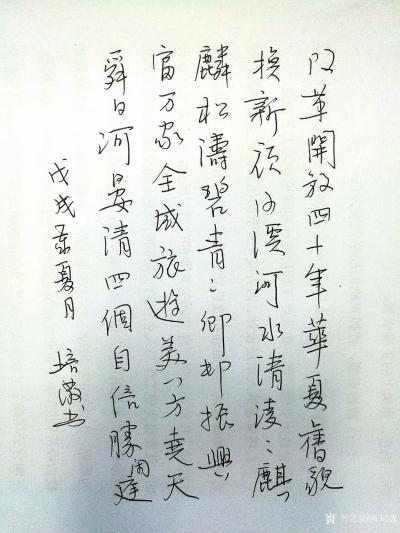 改革開放四十年華夏舊貌
换新顔溪河水清凌〻麒
麟松濤碧青〻鄉邨振興
富万家全域旅遊美一方堯天
舜日河晏清四個自信勝庭
戊戌夏月 培書